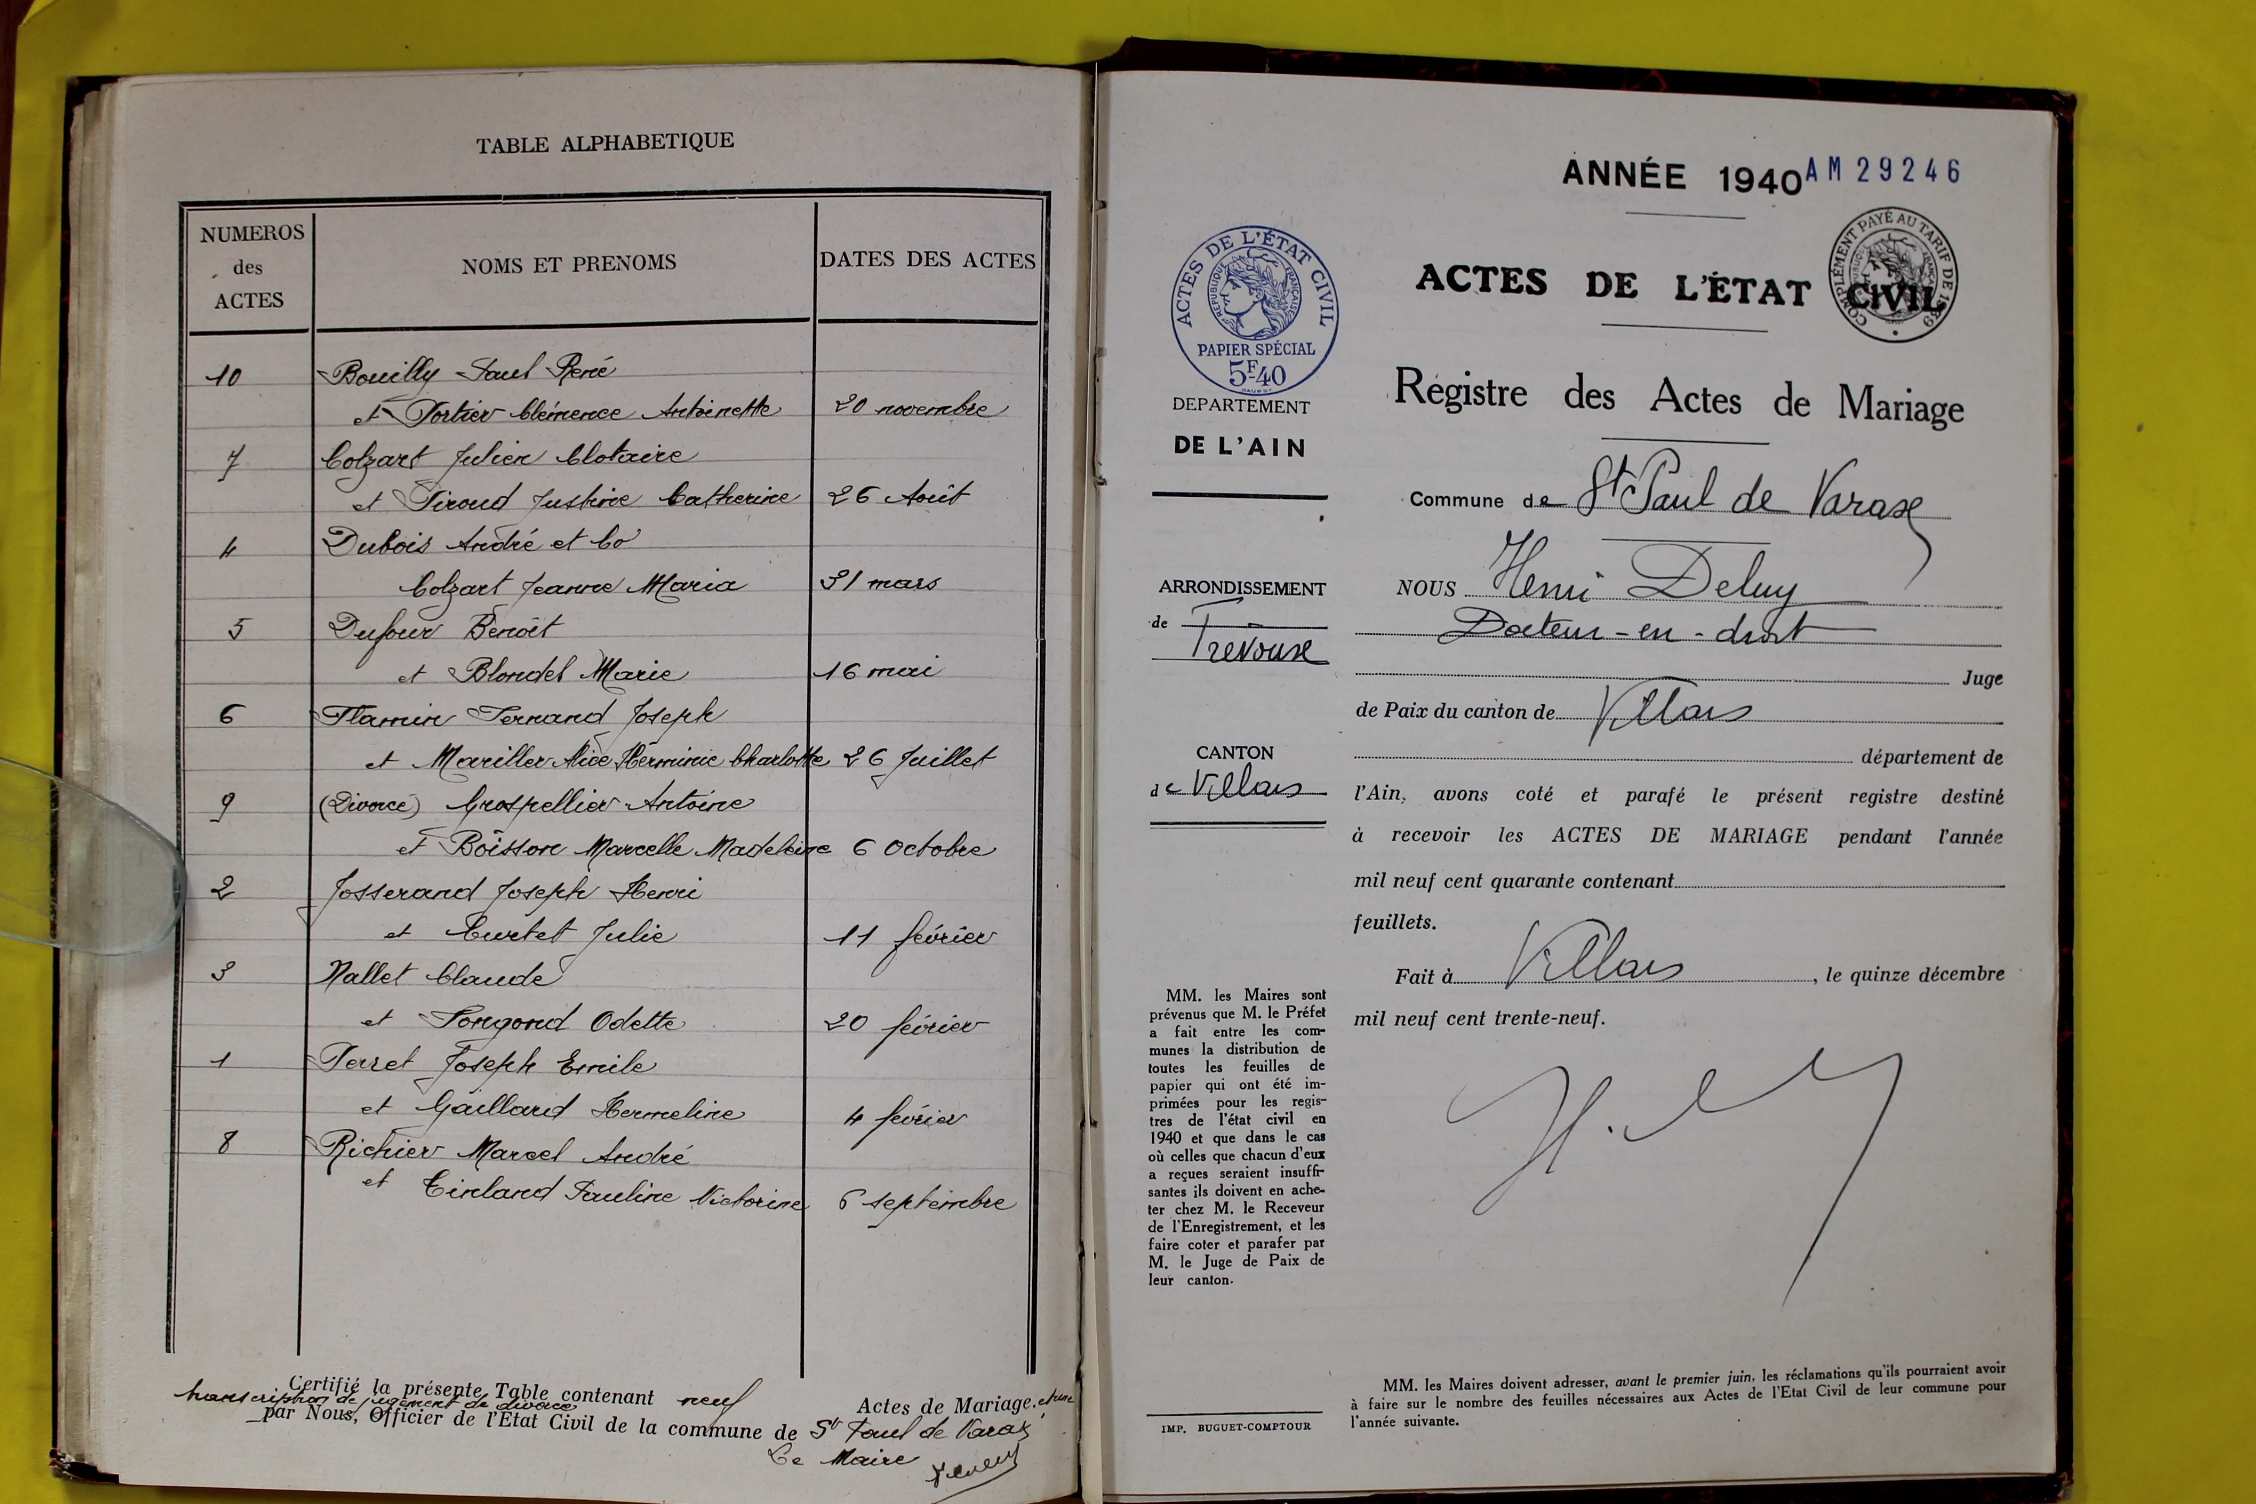 TABLE ALPHABETIQUE
NUMEROS
des
ACTES
NOMS ET PRENOMS
DATES DES ACTES
10 Bouilly Paul René
et Portier Clémence Antoinette 20 novembre
7 Colzart Julien Clotaire
et Piroud Justine Catherine 26 Août
4 Dubois André et Co
Colzart Jeanne Maria 31 mars
5 Dufour Benoît
et Blondel Marie 16 mai
6 Flamin Fernand Joseph
et Mariller Alice Herminie Charlotte 26 Juillet
9 (Divorce) Grospellier Antoine
et Boisson Marcelle Madeleine 6 Octobre
2 Josserand Joseph Henri
et Curtet Julie 11 février
3 Nallet Claude
et Pongond Odette 20 février
1 Perret Joseph Emile
et Gaillard Hermeline 4 février
8 Richier Marcel André
et Tinland Pauline Victorine 6 septembre
Certifié la présente Table contenant neuf Actes de Mariage. et une
transcription de jugement de divorce
par Nous, Officier de l'Etat Civil de la commune de St Paul de Varax
Le Maire
ANNÉE 1940 AM 29246
ACTES DE L'ÉTAT CIVIL
RÉPUBLIQUE FRANÇAISE
PAPIER SPÉCIAL
5F40
COMPLÉMENT PAYÉ AU TARIF DE 1939
ACTES DE L'ÉTAT CIVIL
Registre des Actes de Mariage
DEPARTEMENT
DE L'AIN
Commune de St Paul de Varax
ARRONDISSEMENT
de Trévoux
CANTON
de Villars
NOUS Henri Deluy
Docteur-en-droit
Juge
de Paix du canton de Villars
département de
l'Ain, avons coté et parafé le présent registre destiné
à recevoir les ACTES DE MARIAGE pendant l'année
mil neuf cent quarante contenant
feuillets.
Fait à Villars, le quinze décembre
mil neuf cent trente-neuf.
MM. les Maires sont
prévenus que M. le Préfet
a fait entre les com-
munes la distribution de
toutes les feuilles de
papier qui ont été im-
primées pour les regis-
tres de l'état civil en
1940 et que dans le cas
où celles que chacun d'eux
a reçues seraient insuffi-
santes ils doivent en ache-
ter chez M. le Receveur
de l'Enregistrement, et les
faire coter et parafer par
M. le Juge de Paix de
leur canton.
IMP. BUGUET-COMPTOUR
MM. les Maires doivent adresser, avant le premier juin, les réclamations qu'ils pourraient avoir
à faire sur le nombre des feuilles nécessaires aux Actes de l'Etat Civil de leur commune pour
l'année suivante.